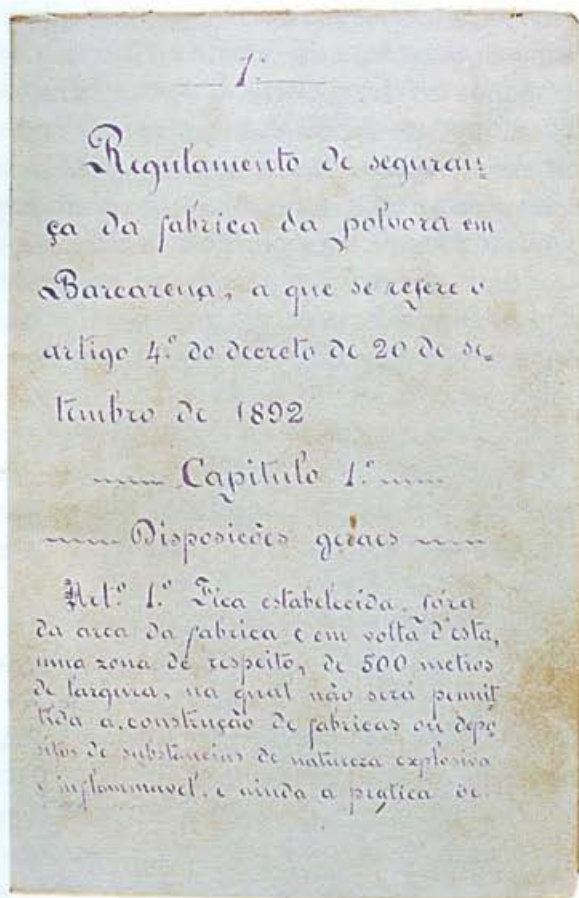 1.º
Regulamento de seguran=
ça da fabrica da polvora em
Barcarena, a que se refere o
artigo 4.º do decreto de 20 de se=
tembro de 1892
Capitulo 1.º
Disposições geraes
Art.º 1.º Fica estabelecida, fóra
da area da fabrica e em volta d'esta,
uma zona de respeito, de 500 metros
de largura, na qual não será permit
tida a construção de fabricas ou depo
sitos de substancias de natureza explosiva
e inflammavel, e ainda a pratica de